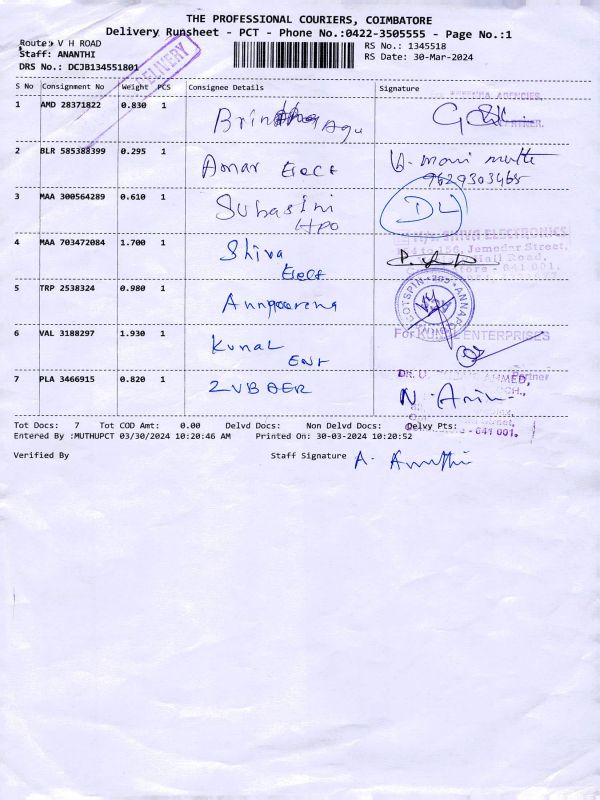 THE PROFESSIONAL COURIERS, COIMBATORE
Delivery Runsheet - PCT - Phone No.:0422-3505555 - Page No.:1
Route: V H ROAD
Staff: ANANTHI
DRS No.: DCJB134551801
DELIVERY
RS No.: 1345518
RS Date: 30-Mar-2024
S No Consignment No Weight PCS Consignee Details Signature
1 AMD 28371822 0.830 1
AGENCIES
2 BLR 585388399 0.295 1 Amar Elect
9629303465
3 MAA 300564289 0.610 1 Subasini
HPO
SHIVA ELECTRONICS
Jemedar Street,
4 MAA 703472084 1.700 1 Shiva
Elect
5 TRP 2538324 0.980 1 Annpoorena
6 VAL 3188297 1.930 1 Kunal
Ent
For KUNAL ENTERPRISES
Partner
7 PLA 3466915 0.820 1 ZUBAER
DR. U. AHMED,
641 001.
Tot Docs: 7 Tot COD Amt: 0.00 Delvd Docs: Non Delvd Docs: Delvy Pts:
Entered By :MUTHUPCT 03/30/2024 10:20:46 AM Printed On: 30-03-2024 10:20:52
Verified By Staff Signature